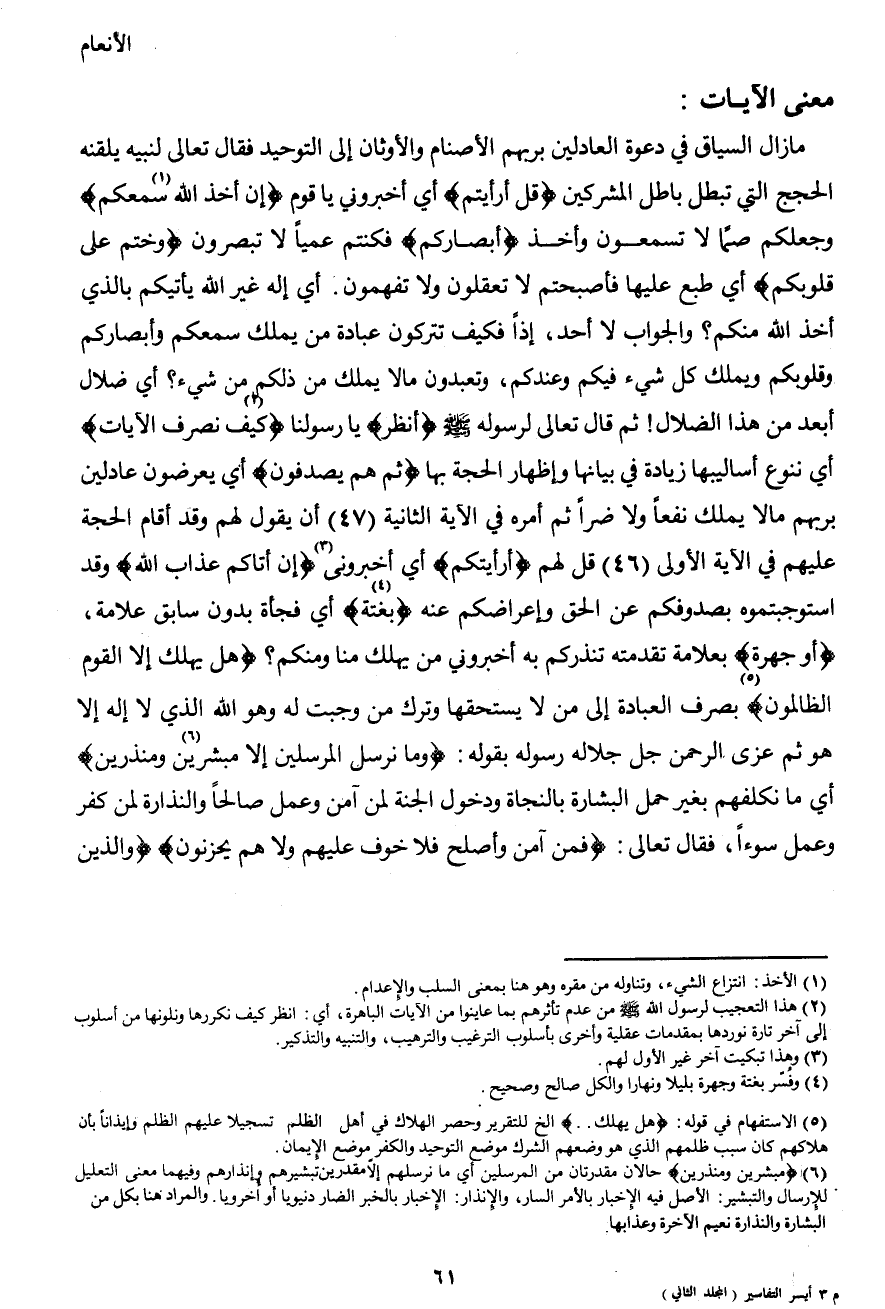 الأنعام
معنى الآيـات :
مازال السياق في دعوة العادلين بربهم الأصنام والأوثان إلى التوحيد فقال تعالى لنبيه يلقنه
الحجج التي تبطل باطل المشركين ﴿قل أرأيتم﴾ أي أخبروني يا قوم ﴿إن أخذ الله سمعكم(١)﴾
وجعلكم صمًا لا تسمعـــون وأخـــذ ﴿أبصـاركم﴾ فكنتم عمياً لا تبصرون ﴿وختم على
قلوبكم﴾ أي طبع عليها فأصبحتم لا تعقلون ولا تفهمون. أي إله غير الله يأتيكم بالذي
أخذ الله منكم؟ والجواب لا أحد، إذاً فكيف تتركون عبادة من يملك سمعكم وأبصاركم
وقلوبكم ويملك كل شيء فيكم وعندكم، وتعبدون مالا يملك من ذلكم من شيء؟ أي ضلال
أبعد من هذا الضلال! ثم قال تعالى لرسوله ﷺ ﴿أنظر﴾ يا رسولنا ﴿كيف(٢) نصرف الآيات﴾
أي ننوع أساليبها زيادة في بيانها وإظهار الحجة بها ﴿ثم هم يصدفون﴾ أي يعرضون عادلين
بربهم مالا يملك نفعاً ولا ضراً ثم أمره في الآية الثانية (٤٧) أن يقول لهم وقد أقام الحجة
عليهم في الآية الأولى (٤٦) قل لهم ﴿أرأيتكم﴾ أي أخبرونى(٣) ﴿إن أتاكم عذاب الله﴾ وقد
استوجبتموه بصدوفكم عن الحق وإعراضكم عنه ﴿بغتة(٤)﴾ أي فجأة بدون سابق علامة،
﴿أو جهرة﴾ بعلامة تقدمته تنذركم به أخبروني من يهلك منا ومنكم؟ ﴿هل يهلك إلا القوم
الظالمون(٥)﴾ بصرف العبادة إلى من لا يستحقها وترك من وجبت له وهو الله الذي لا إله إلا
هو ثم عزى الرحمن جل جلاله رسوله بقوله : ﴿وما نرسل المرسلين إلا مبشرين(٦) ومنذرين﴾
أي ما نكلفهم بغير حمل البشارة بالنجاة ودخول الجنة لمن آمن وعمل صالحاً والنذارة لمن كفر
وعمل سوءاً، فقال تعالى : ﴿فمن آمن وأصلح فلا خوف عليهم ولا هم يحزنون﴾ ﴿والذين
(١) الأخذ : انتزاع الشيء، وتناوله من مقره وهو هنا بمعنى السلب والإعدام.
(٢) هذا التعجيب لرسول الله ﷺ من عدم تأثرهم بما عاينوا من الآيات الباهرة، أي : انظر كيف نكررها ونلونها من أسلوب
إلى آخر تارة نوردها بمقدمات عقلية وأخرى بأسلوب الترغيب والترهيب، والتنبيه والتذكير.
(٣) وهذا تبكيت آخر غير الأول لهم.
(٤) وفُسّر بغتة وجهرة بليلا ونهارا والكل صالح وصحيح.
(٥) الاستفهام في قوله : ﴿هل يهلك . .﴾ الخ للتقرير وحصر الهلاك في أهل الظلم تسجيلا عليهم الظلم وإيذاناً بأن
هلاكهم كان سبب ظلمهم الذي هو وضعهم الشرك موضع التوحيد والكفر موضع الإيمان.
(٦) ﴿مبشرين ومنذرين﴾ حالان مقدرتان من المرسلين أي ما نرسلهم إلاّ مقدرين تبشيرهم وإنذارهم وفيهما معنى التعليل
للإرسال والتبشير : الأصل فيه الإخبار بالأمر السار، والإنذار : الإخبار بالخبر الضار دنيويا أو أخرويا. والمراد هنا بكل من
البشارة والنذارة نعيم الآخرة وعذابها.
٦١
م ٣ أيسر التفاسير ( المجلد الثاني )